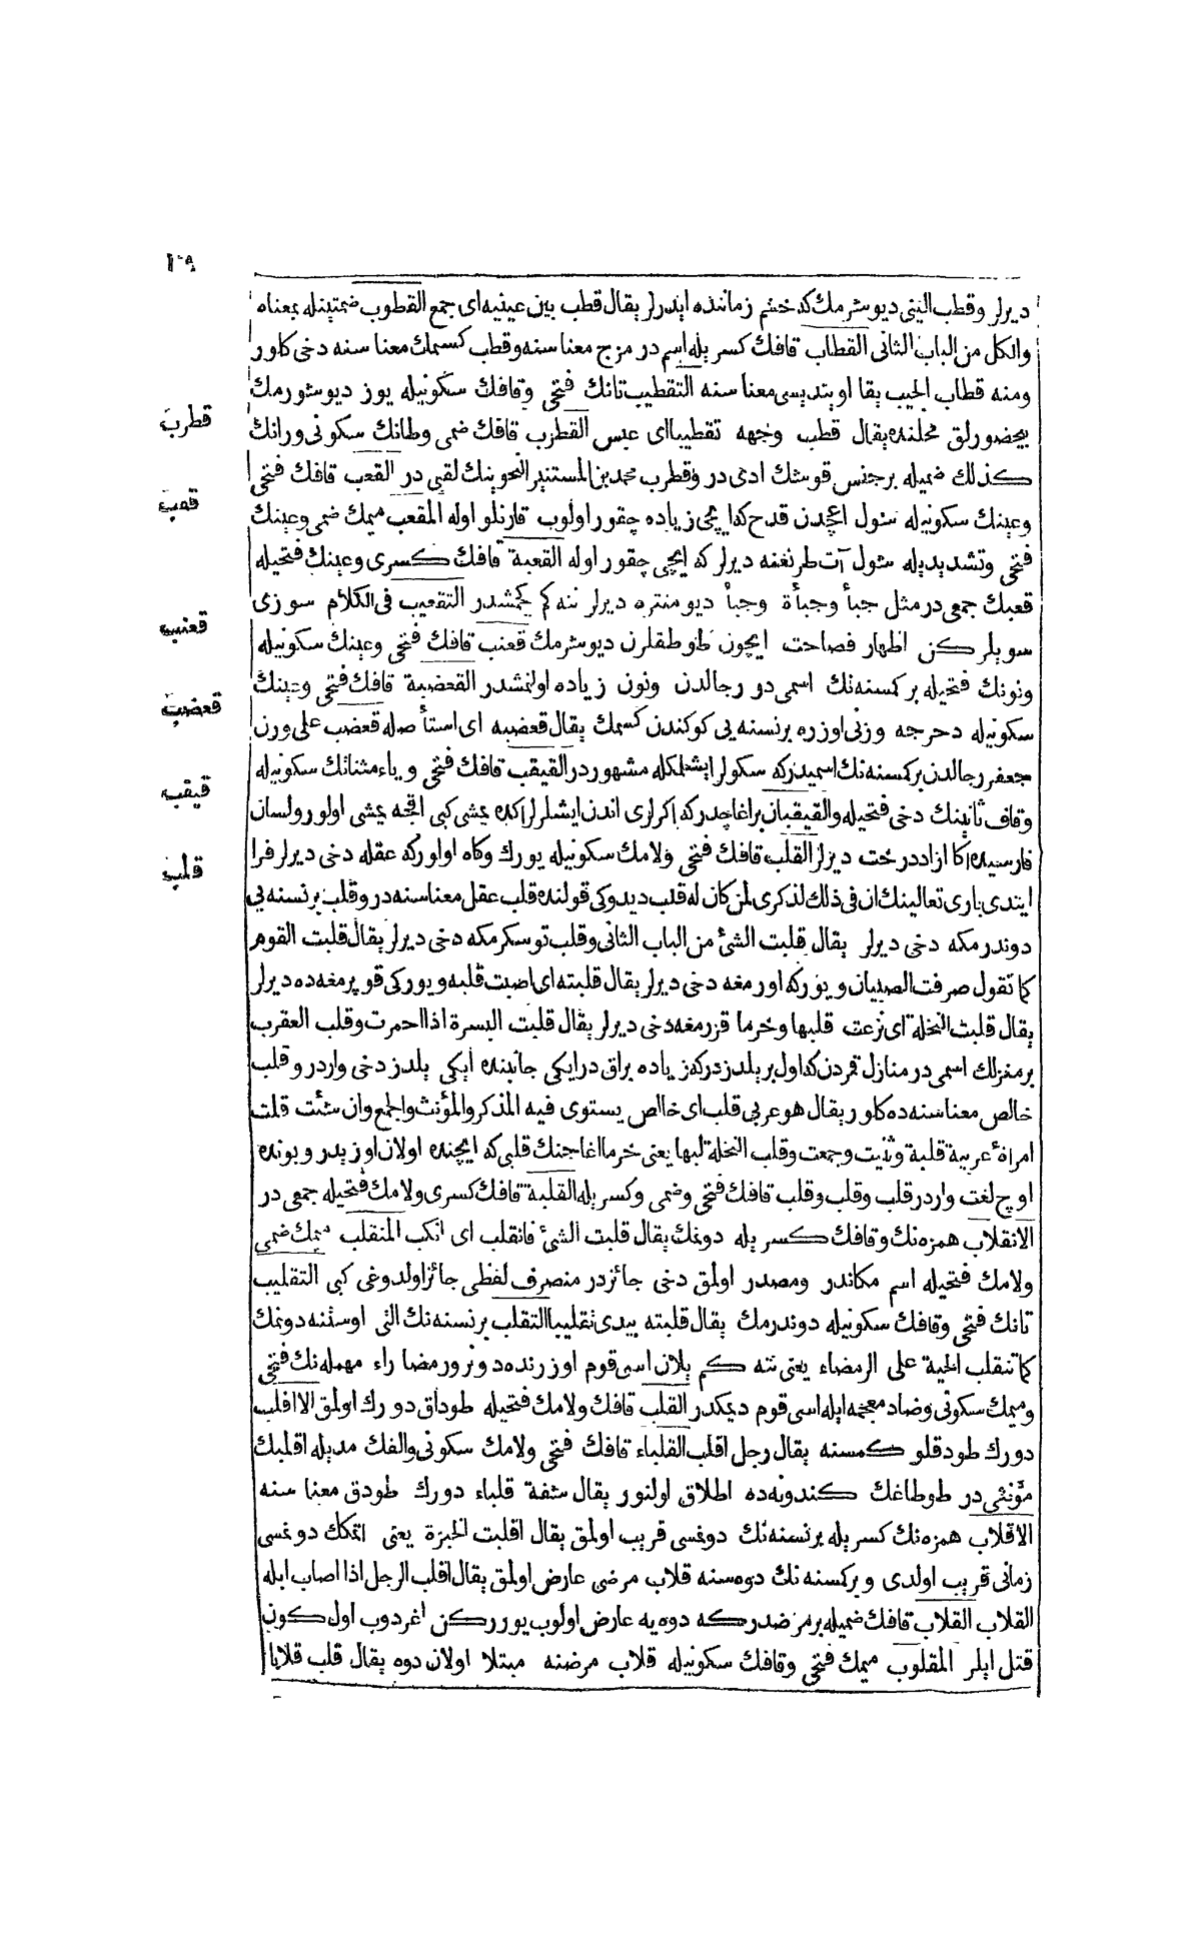 ١٠٩
ديرلر وقطب اليني ديوشرمك كه خشم زماننده ايدرلر يقال قطب بين عينيه اى جمع القطوب ضمتينله بمعناه
والكل من الباب الثانى القطاب قافك كسريله اسم در مزج معناسنه وقطب كسمك معناسنه دخى كلور
ومنه قطاب الجيب يقا اويتديسى معناسنه التقطيب تانك فتحى وقافك سكونيله يوز ديوشورمك
بيحضورلق محلنده يقال قطب وجهه تقطيبا اى عبس القطرب قافك ضمى وطانك سكونى ورانك
كذلك ضميله برجنس قوشك ادى در وقطرب محمد بن المستنير النحوينك لقبى در القعب قافك فتحى
وعينك سكونيله شول اغجدن قدح كه ايچى زياده چقور اولوب قارنلو اوله المقعب ميمك ضمى وعينك
فتحى وتشديديله شول آت طرنغنه ديرلر كه ايچى چقور اوله القعبة قافك كسرى وعينك فتحيله
قعبك جمعى در مثل جبأ وجبأة وجبأ ديو منتره ديرلر ننه كم كچمشدر التقعيب فى الكلام سوزى
سويلركن اظهار فصاحت ايچون طوطقلرن ديوشرمك قعنب قافك فتحى وعينك سكونيله
ونونك فتحيله بر كسنه نك اسمى در رجالدن ونون زياده اولنمشدر القعضبة قافك فتحى وعينك
سكونيله دحرجه وزنى اوزره برنسنه يى كوكندن كسمك يقال قعضبه اى استأصله قعضب على وزن
جعفر رجالدن بر كسنه نك اسميدر كه سكولر ايشلمكله مشهوردر القيقب قافك فتحى وياء مثناتك سكونيله
وقاف ثانينك دخى فتحيله والقيقبان بر اغاچدر كه اكرلرى اندن ايشلرلر اكده يمشى كبى اقچه يمشى اولور ولسان
فارسيده اكا ازاد درخت ديرلر القلب قافك فتحى ولامك سكونيله يورك وكاه اولور كه عقله دخى ديرلر فرا
ايتدى بارى تعالينك ان فى ذلك لذكرى لمن كان له قلب ديدوكى قولنده قلب عقل معناسنه در وقلب برنسنه يى
دوندرمكه دخى ديرلر يقال قلبت الشئ من الباب الثانى وقلب توسكرمكه دخى ديرلر يقال قلبت القوم
كما تقول صرفت الصبيان ويوركه اورمغه دخى ديرلر يقال قلبته اى اصبت قلبه ويوركى قوپرمغه ده ديرلر
يقال قلبت النخلة اى نزعت قلبها وخرما قزرمغه دخى ديرلر يقال قلبت البسرة اذا احمرت وقلب العقرب
بر منزلك اسمى در منازل قمردن كه اول بر يلدزدر كه زياده براق در ايكى جانبنده ايكى يلدز دخى واردر وقلب
خالص معناسنه ده كلور يقال هو عربى قلب اى خالص يستوى فيه المذكر والمؤنث والجمع وان شئت قلت
امراة عربية قلبة وثنيت وجمعت وقلب النخلة لبها يعنى خرما اغاجنك قلبى كه ايچنده اولان اوزيدر وبونده
اوچ لغت واردر قلب وقلب وقلب قافك فتحى وضمى وكسريله القلبة قافك كسرى ولامك فتحيله جمعى در
الانقلاب همزه نك وقافك كسريله دونمك يقال قلبت الشئ فانقلب اى انكب المنقلب ميمك ضمى
ولامك فتحيله اسم مكاندر ومصدر اولمق دخى جائزدر منصرف لفظى جائز اولدوغى كبى التقليب
تانك فتحى وقافك سكونيله دوندرمك يقال قلبته بيدى تقليبا التقلب برنسنه نك التى اوستنه دونمك
كما تنقلب الحية على الرمضاء يعنى ننه كم يلان اسى قوم اوزرنده دونر ورمضا راء مهمله نك فتحى
وميمك سكونى وضاد معجمه ايله اسى قوم ديمكدر القلب قافك ولامك فتحيله طوداق دورك اولمق الاقلب
دورك طودقلو كمسنه يقال رجل اقلب القلباء قافك فتحى ولامك سكونى والفك مديله اقلبك
مؤنثى در طوطاغك كندونه ده اطلاق اولنور يقال شفة قلباء دورك طودق معناسنه
الاقلاب همزه نك كسريله برنسنه نك دونمسى قريب اولمق يقال اقلبت الخبزة يعنى اتمكك دونمسى
زمانى قريب اولدى وبر كسنه نك دوه سنه قلاب مرضى عارض اولمق يقال اقلب الرجل اذا اصاب ابله
القلاب القلاب قافك ضميله بر مرضدر كه دوه يه عارض اولوب يورركن اغردوب اول كون
قتل ايلر المقلوب ميمك فتحى وقافك سكونيله قلاب مرضنه مبتلا اولان دوه يقال قلب قلابا
قطرب
قعب
قعنب
قعضب
قيقب
قلب